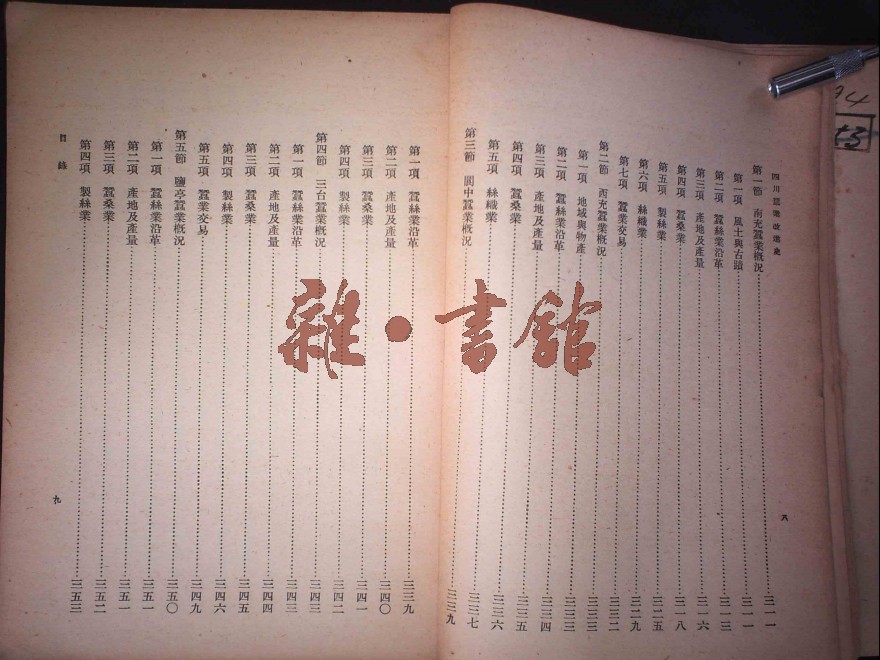 四川蠶業改進史
第一節 南充蠶業概況……三一一
第一項 風土與古蹟……三一一
第二項 蠶絲業沿革……三一三
第三項 產地及產量……三一六
第四項 蠶桑業……三一八
第五項 製絲業……三二五
第六項 絲織業……三二九
第七項 蠶業交易……三三一
第二節 西充蠶業概況……三三二
第一項 地域與物產……三三三
第二項 蠶絲業沿革……三三三
第三項 產地及產量……三三四
第四項 蠶桑業……三三五
第五項 絲織業……三三六
第三節 閬中蠶業概況……三三九
八
第一項 蠶絲業沿革……三三九
第二項 產地及產量……三四〇
第三項 蠶桑業……三四一
第四項 製絲業……三四二
第四節 三台蠶業概況……三四三
第一項 蠶絲業沿革……三四三
第二項 產地及產量……三四四
第三項 蠶桑業……三四五
第四項 製絲業……三四六
第五項 蠶業交易……三四九
第五節 鹽亭蠶業概況……三五〇
第一項 蠶絲業沿革……三五一
第二項 產地及產量……三五一
第三項 蠶桑業……三五二
第四項 製絲業……三五三
目錄
九
雜·書館